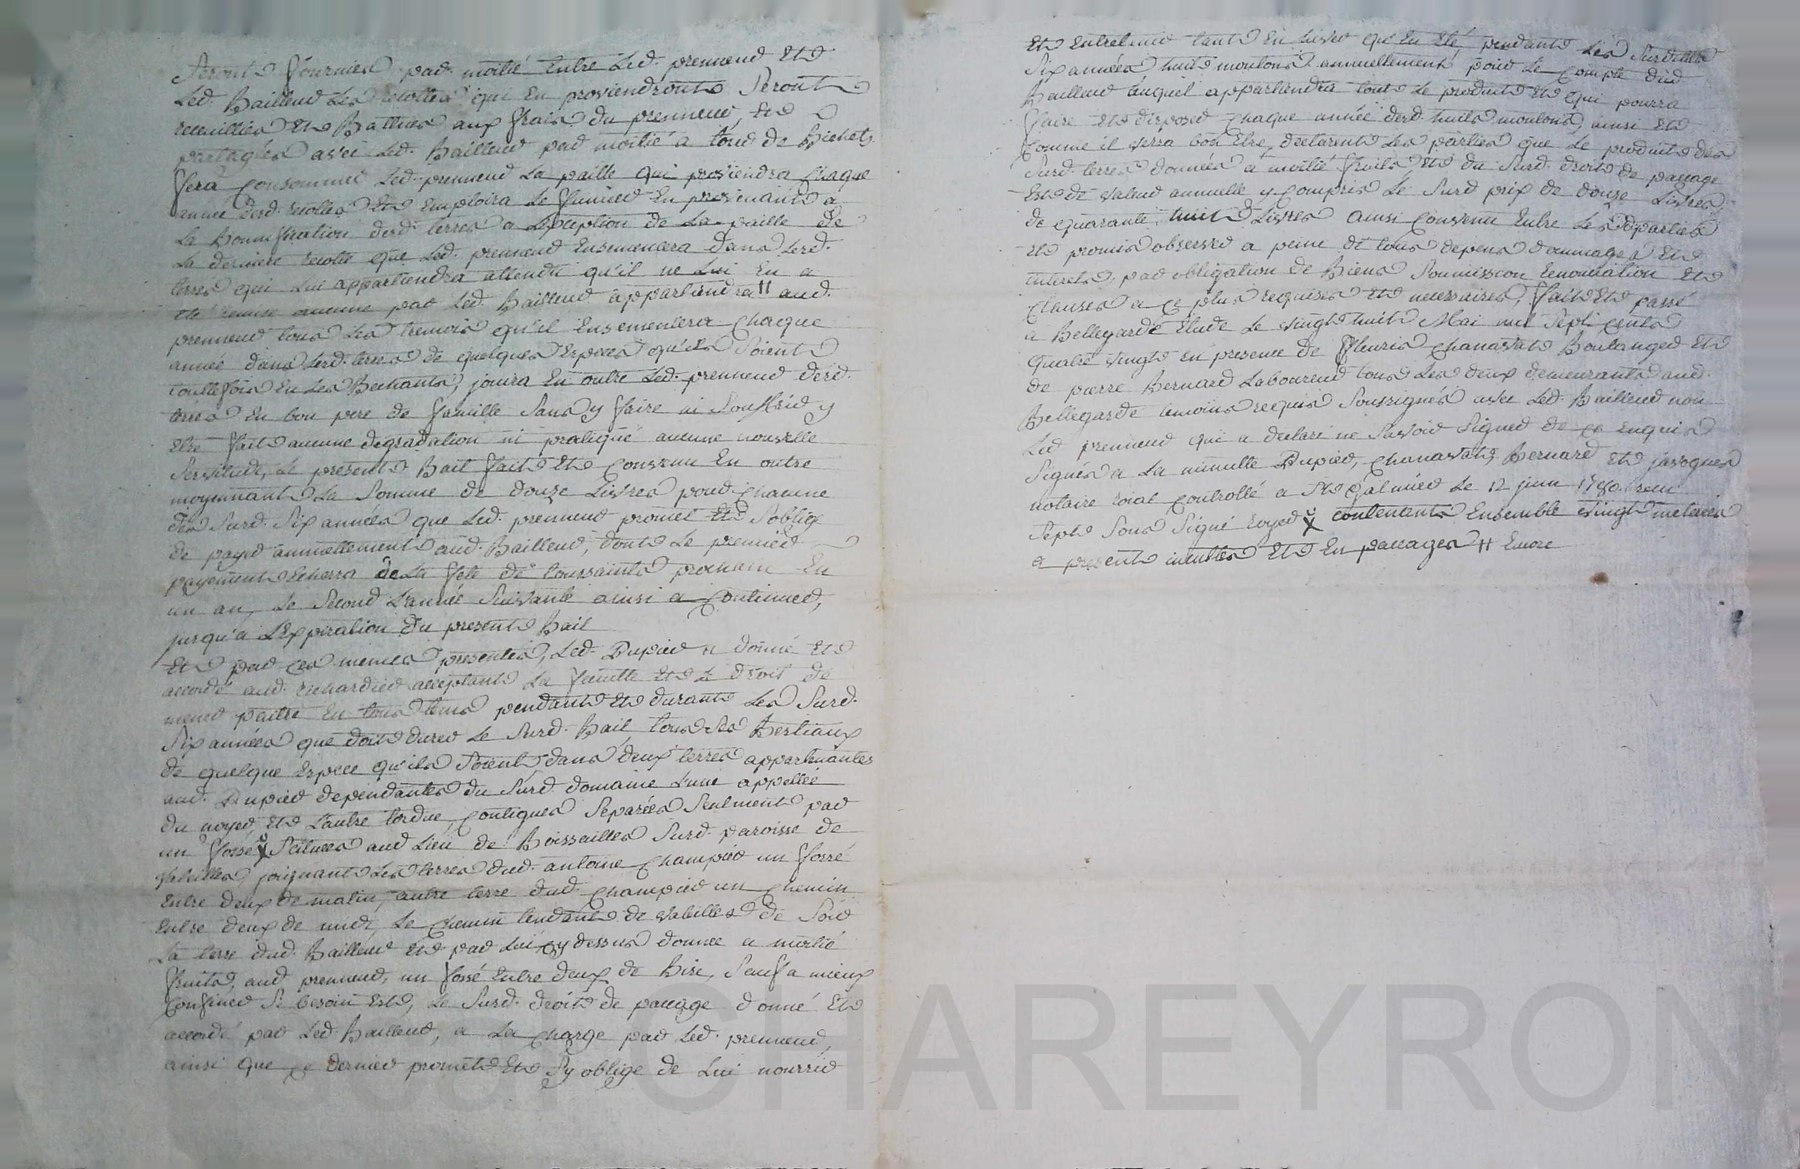 Seront fournies par moitié entre led. preneur et
led. Bailleur les recoltes qui en proviendront seront
recueillies et Battues aux frais du preneur, et
partagées avec led. Bailleur par moitié a tour de Bichet
fera consommer led. preneur la paille qui proviendra chaque
année desd. recoltes et emploira le fumier en provenant a
la Bonnification desd. terres a l'exception de la paille de
la derniere recolte que led. preneur ensemencera dans lesd.
terres qui lui appartiendra attendu qu'il ne lui en a
été remise aucune par led. Bailleur appartiendra # aud.
preneur tous les tremois qu'il ensemencera chaque
année dans lesd. terres de quelques especes qu'ils soient
touttefois en les Bechants, jouira en outre led. preneur desd.
terres en bon pere de famille sans y faire ni souffrir y
etre fait aucune degradation ni pratiqué aucune nouvelle
servitude, le present Bail fait et convenu en outre
moyennant la somme de douze livres pour chacune
des surd. six années que led. preneur promet et s'oblige
de payer annuellement aud. Bailleur, dont le premier
payement echerra de la fete de toussaints prochain en
un an, le second l'année suivante ainsi a continuer,
jusqu'a l'expiration du present Bail
Et par ces memes presentes, led. Dupier a donné et
accordé aud. richardier acceptant la faculté et le droit de
mener paitre en tous tems pendant et durant les surd.
six années que doit durer le surd. Bail tous ses Bestiaux
de quelque espece qu'ils soient dans deux terres appartenantes
aud. Dupier dependantes du surd. domaine l'une appellée
du noyer et l'autre tordue, contigues separées seulement par
un fossé x situées aud. lieu de Boissailles surd. paroisse de
joignant les terres dud. antoine champier un fossé
entre deux de matin, autre terre dud. champier un chemin
entre deux de midi, le chemin tendant de de soir
la terre dud. Bailleur et par lui cy dessus donnée a moitié
fruits, aud. preneur, un fossé entre deux de Bise, sauf a mieux
confiner si besoin est, le surd. droit de paccage donné et
accordé par led. Bailleur, a la charge par led. preneur,
ainsi que ce dernier promet et s'y oblige de lui nourrir
et entretenir tant en hiver qu'en eté, pendant les surdittes
six années huit moutons annuellement pour le compte dud.
Bailleur auquel appartiendra tout le produit et qui pourra
faire et disposer chaque année desd. huits moutons, ainsi et
comme il verra bon etre, declarent les parties que le produit des
surd. terres données a moitié fruits et du surd. droit de paccage
est de valeur annuelle y compris le surd. prix de douze livres
de quarante huit livres ainsi convenu entre les parties
et promis observer a peine de tous depens dommages et
interets, par obligation de Biens soumission renonciation et
clauses a ce plus requises et necessaires, fait et passé
a Bellegarde etude le vingt huit Mai mil sept cents
quatre vingt en presence de fleuris chanavat Boulanger et
de pierre Bernard laboureur tous les deux demeurants aud.
Bellegarde temoins requis soussignés avec led. Bailleur non
led. preneur qui a declaré ne savoir signer de ce enquis
signés a la minutte Dupier, chanavat, Bernard et
notaire roial controllé a St Galmier le 12 juin 1780. recu
sept sous signé royer x contenants ensemble vingt meterées
a present incultes et en paccages # encore
CHAREYRON